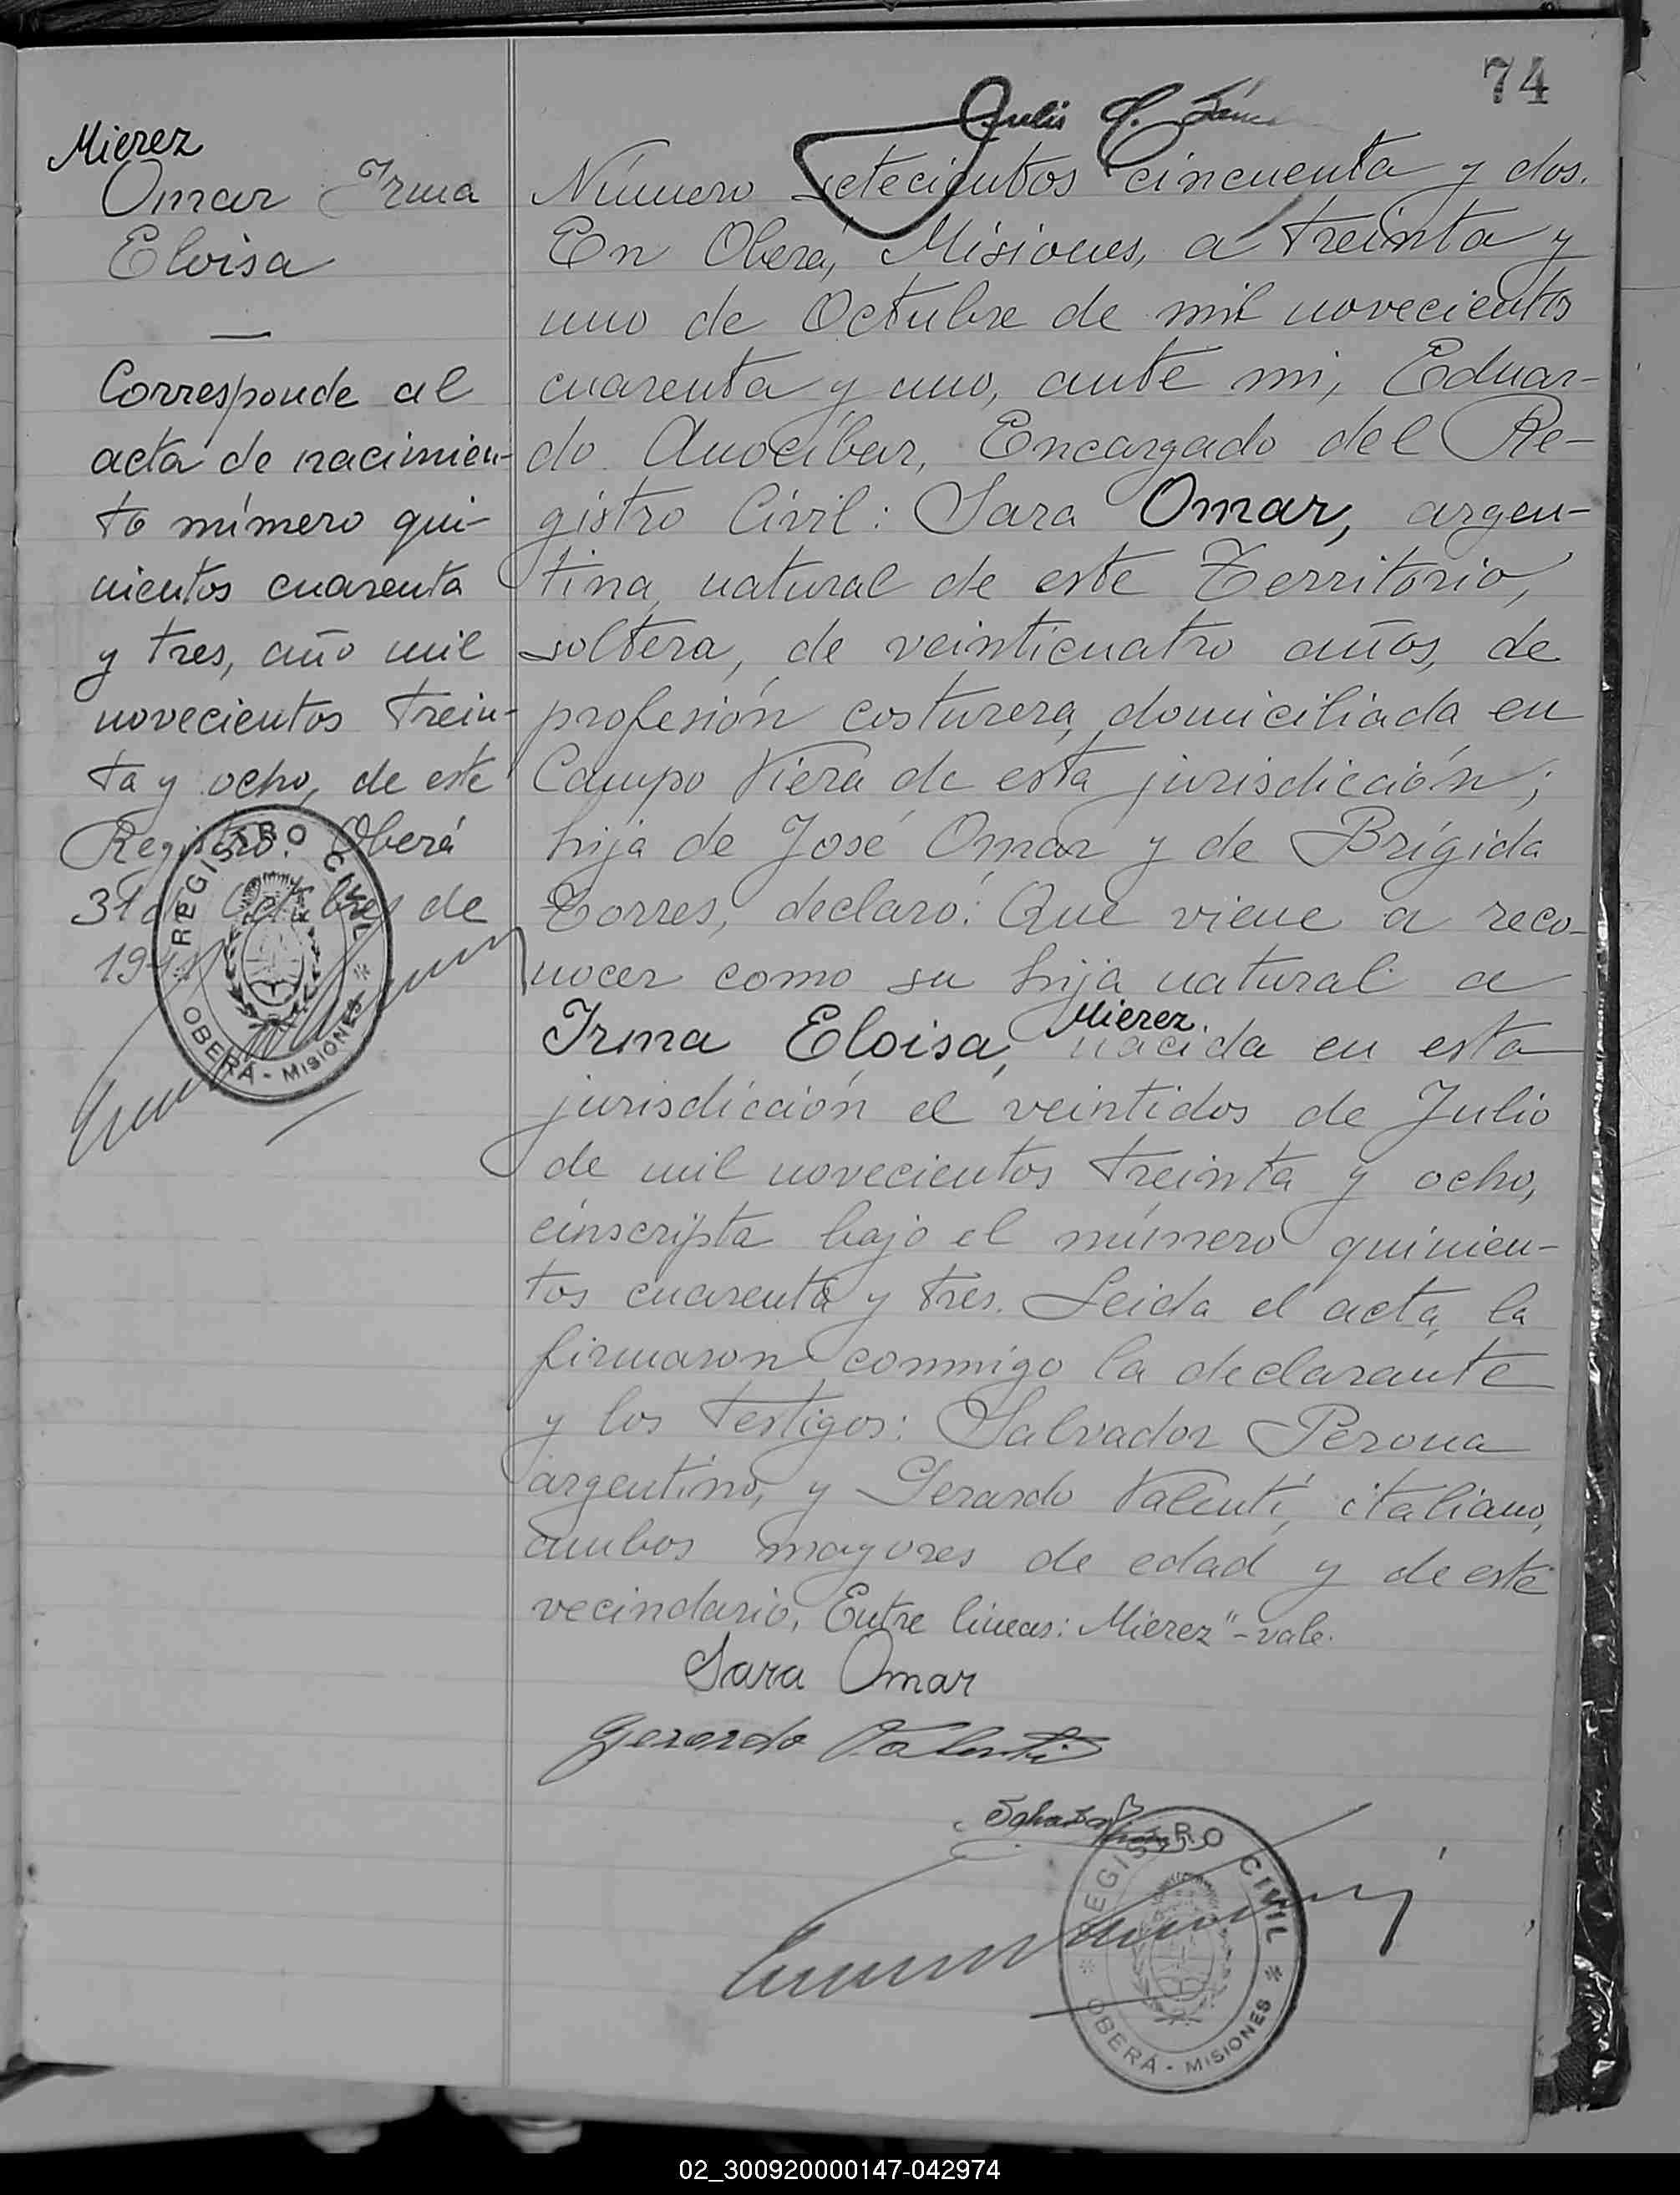 74
Mierez
Omar Irma
Eloisa
—
Corresponde al
acta de nacimien-
to número qui-
nientos cuarenta
y tres, año mil
novecientos trein-
ta y ocho, de este
Registro. Oberá
31 de Octubre de
1941
REGISTRO CIVIL
OBERÁ - MISIONES
Julio
Número setecientos cincuenta y dos.
En Oberá, Misiones, a treinta y
uno de Octubre de mil novecientos
cuarenta y uno, ante mi, Eduar-
do Anocíbar, Encargado del Re-
gistro Civil: Sara Omar, argen-
tina, natural de este Territorio,
soltera, de veinticuatro años, de
profesión costurera, domiciliada en
Campo Viera de esta jurisdicción;
hija de José Omar y de Brígida
Torres, declaró: Que viene a reco-
nocer como su hija natural a
Irma Eloisa, Mierez. nacida en esta
jurisdicción el veintidos de Julio
de mil novecientos treinta y ocho,
einscripta bajo el número quinien-
tos cuarenta y tres. Leida el acta, la
firmaron conmigo la declarante
y los testigos: Salvador Perona
argentino, y Gerardo Valenti, italiano,
ambos mayores de edad y de este
vecindario. Entre lineas: Mierez"-vale.
Sara Omar
Gerardo Valenti
REGISTRO CIVIL
OBERÁ - MISIONES
02_300920000147-042974